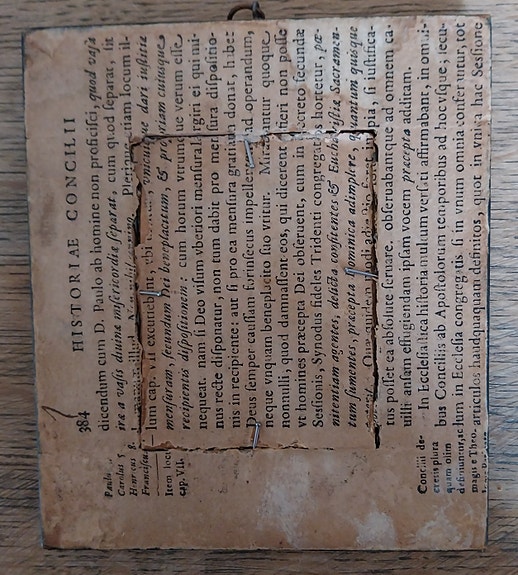 384 HISTORIAE CONCILII
dicendum cum D. Paulo ab homine non proficiſci, quod vaſa
iræ a vaſis divina miſericordia ſeparat, cum quod ſeparat, ſit
locum il-
lum cap. vbi dari iuſtitiæ
menſuram, ſecundum Dei beneplacitum, & propriam cuiusque
recipientis diſpoſitionem: cum horum vtrumque verum eſſe
nequeat. nam ſi Deo viſum vberiori menſura largiri ei qui mi-
nus recte diſponatur, non tum dabit pro menſura diſpoſitio-
nis in recipiente: aut ſi pro ea menſura gratiam donat, habet
Deus ſemper cauſſam forinſecus impellentem ad operandum,
neque vnquam beneplacito ſuo vtitur. Mirabantur quoque
nonnulli, quod damnaſſent eos, qui dicerent fieri non poſſe
vt homines præcepta Dei obſeruent, cum in decreto ſecundæ
Seſſionis Synodus fideles Tridenti congregatos hortetur, pæ-
nitentiam agentes, delicta confitentes & Euchariſtiæ Sacramen-
tum ſumentes, præcepta Dominica adimplere, quantum quisque
pia, ſi iuſtifica-
tus poſſet ea abſolute ſeruare. obſeruabantque ad omnem ca-
uilli anſam effugiendam ipſam vocem præcepta additam.
In Eccleſiaſtica hiſtoria multum verſati affirmabant, in omni-
bus Conciliis ab Apoſtolorum temporibus ad hoc vſque, ſecu-
lum in Eccleſia congregatis ſi in vnum omnia conferantur, tot
articulos haudquaquam definitos, quot in vna hac Seſſione
Paulus
Carolus 5
Henricus 8.
Franciſcus
Item locu
cap. VII.
Concilii de-
cretis plura
quam olim
definiuntur,
magis e Theo.